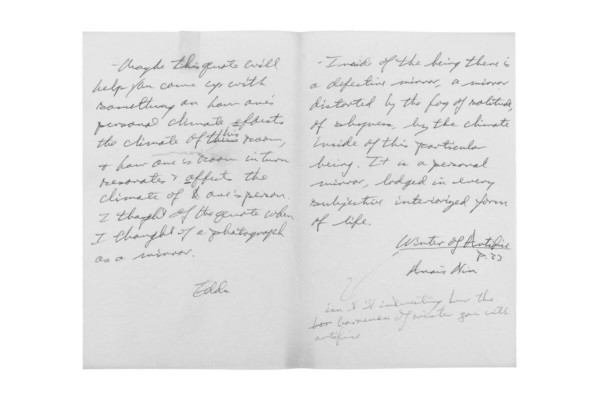 - Maybe this quote will
help you come up with
something on how one's
personal climate effects
the climate of his room,
& how one's room in turn
resonates & affects the
climate of one's person.
I thought of the quote when
I thought of a photograph
as a mirror.
Edda
- Inside of the being there is
a defective mirror, a mirror
distorted by the fog of solitude,
of shyness, by the climate
inside of this particular
being. It is a personal
mirror, lodged in every
subjective interiorized form
of life.
Winter of Artifice
Anais Nin
isn't it interesting how the
barrenness of winter goes with
artifice